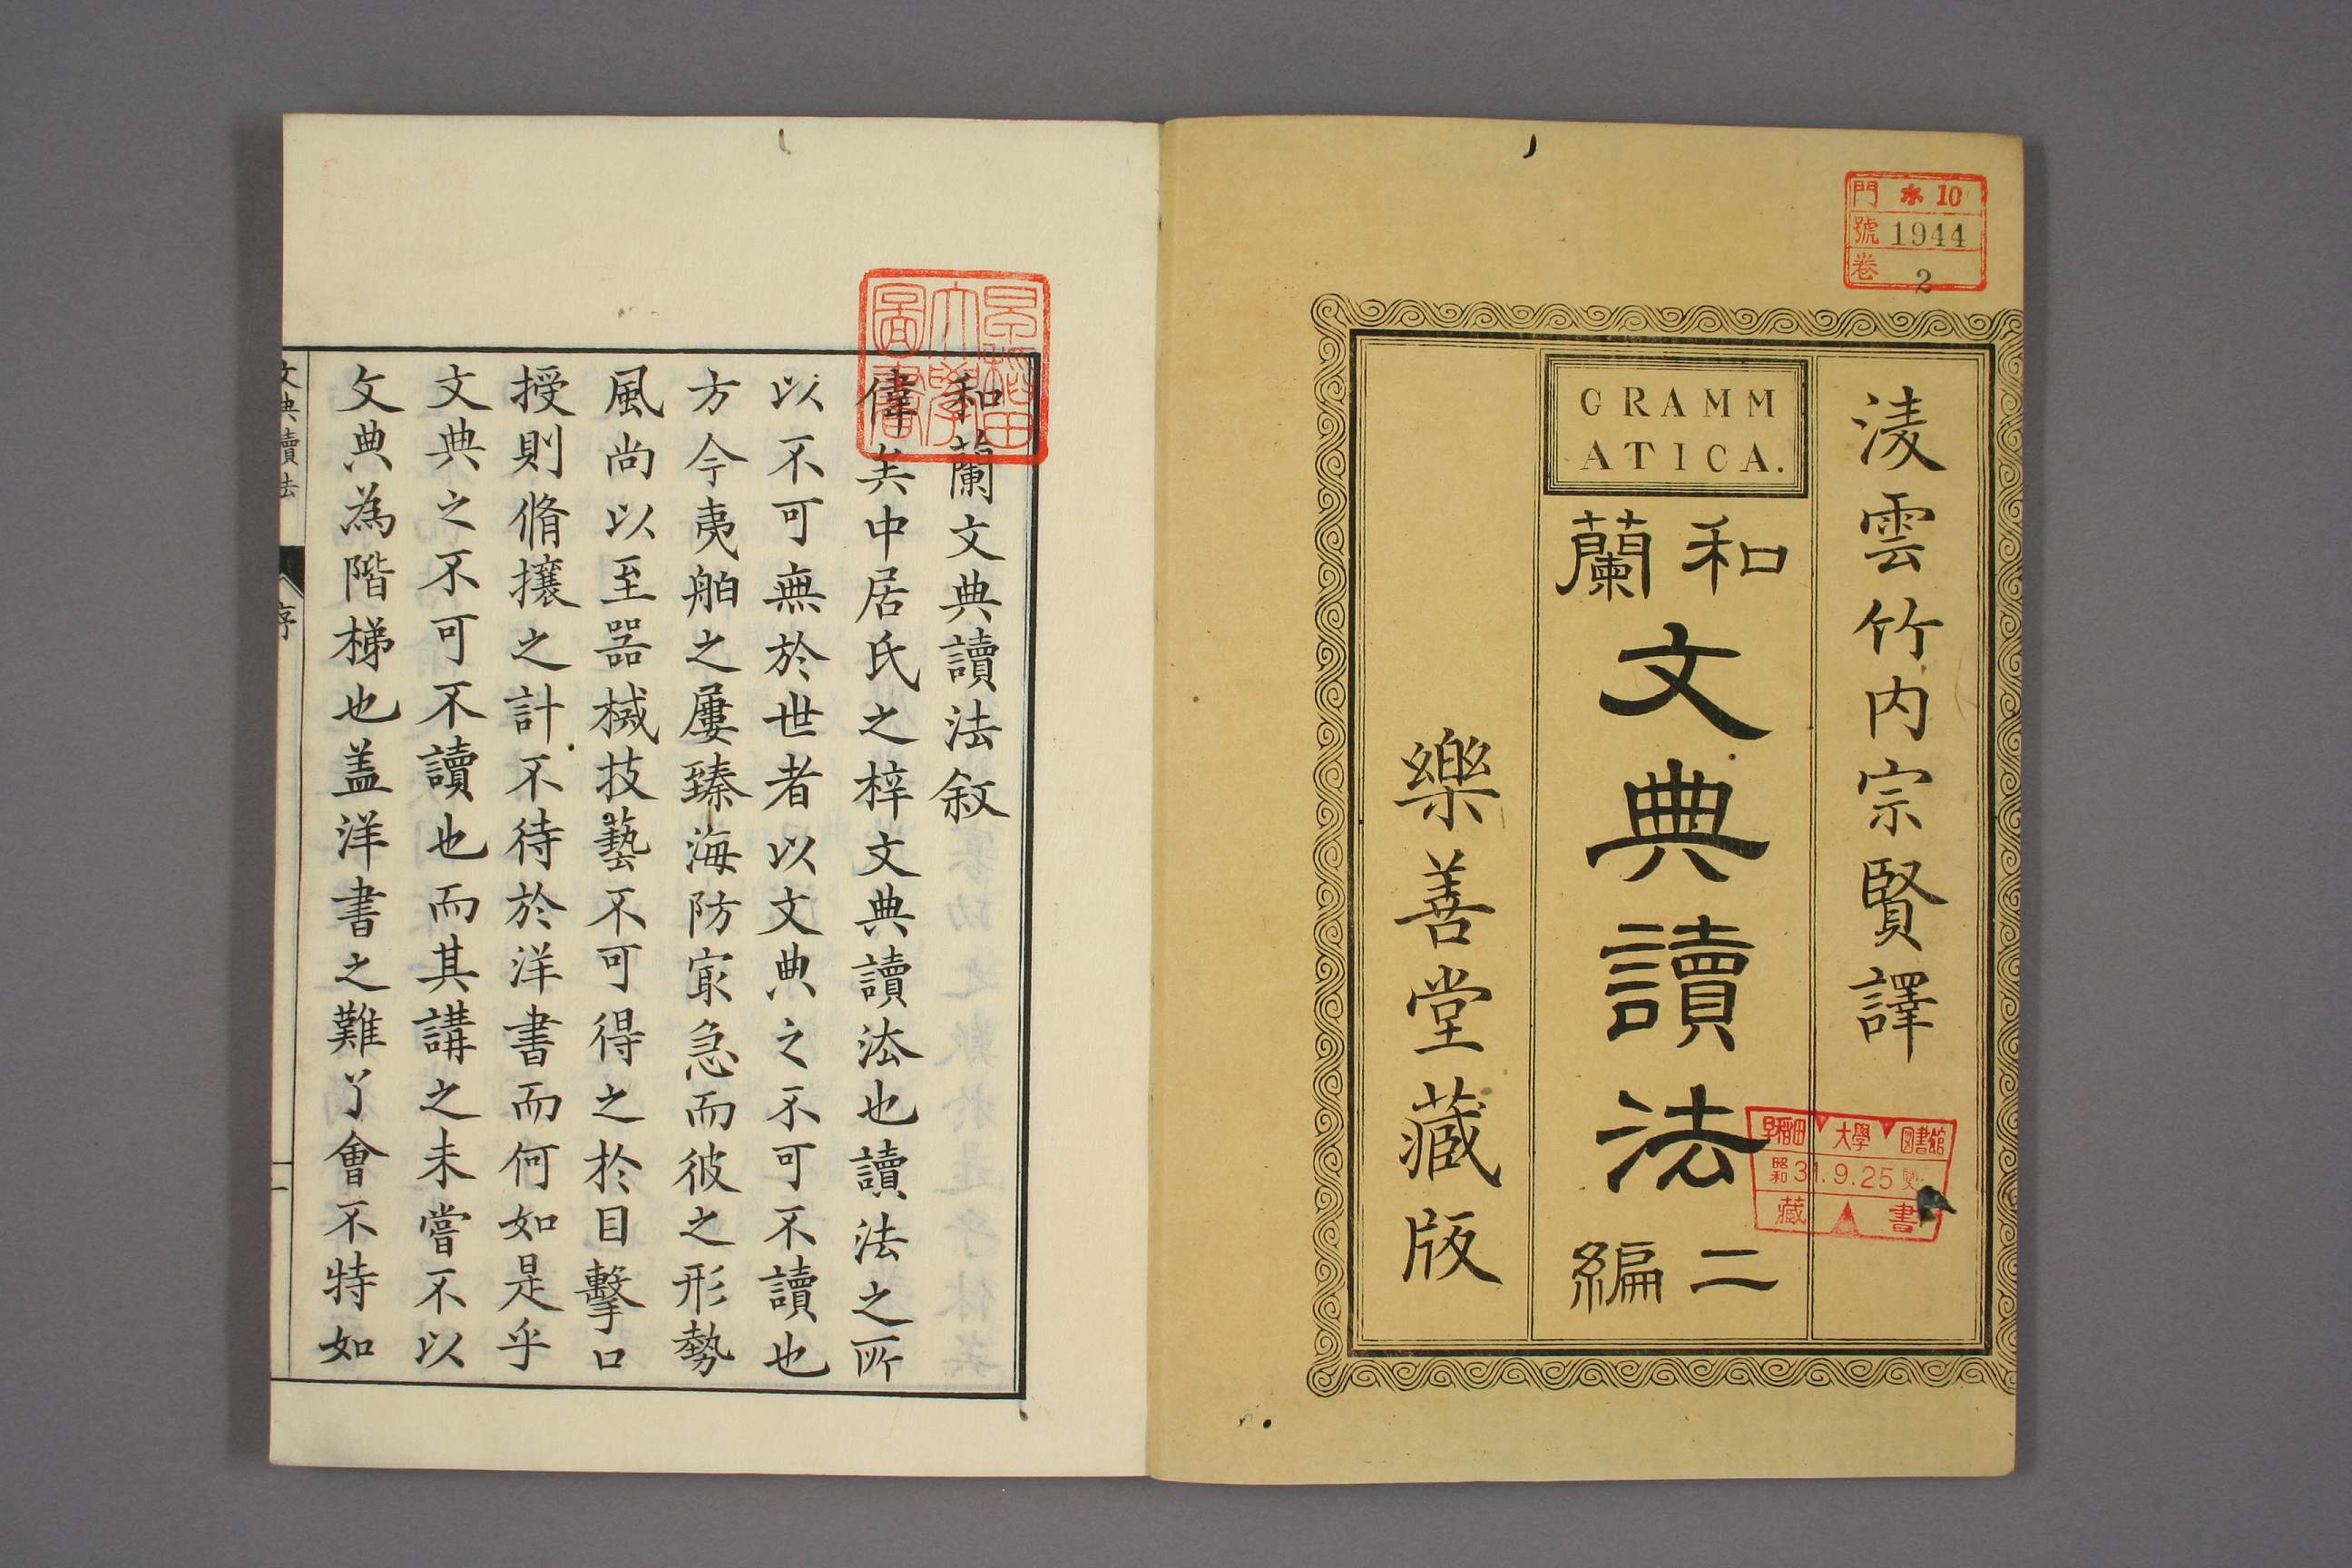 門 ホ 10
號 1944
卷 2
淩雲竹内宗賢譯
GRAMM
ATICA.
和蘭
文典讀法
二編
樂善堂藏版
早稻田大學圖書館
昭和 31.9.25
藏書
早稻田大學圖書
和蘭文典讀法敘
偉矣中居氏之梓文典讀法也讀法之所
以不可無於世者以文典之不可不讀也
方今夷舶之屢臻海防冣急而彼之形勢
風尚以至器械技藝不可得之於目擊口
授則脩攘之計不待於洋書而何如是乎
文典之不可不讀也而其講之未嘗不以
文典為階梯也盖洋書之難了會不特如
文典讀法
序
一